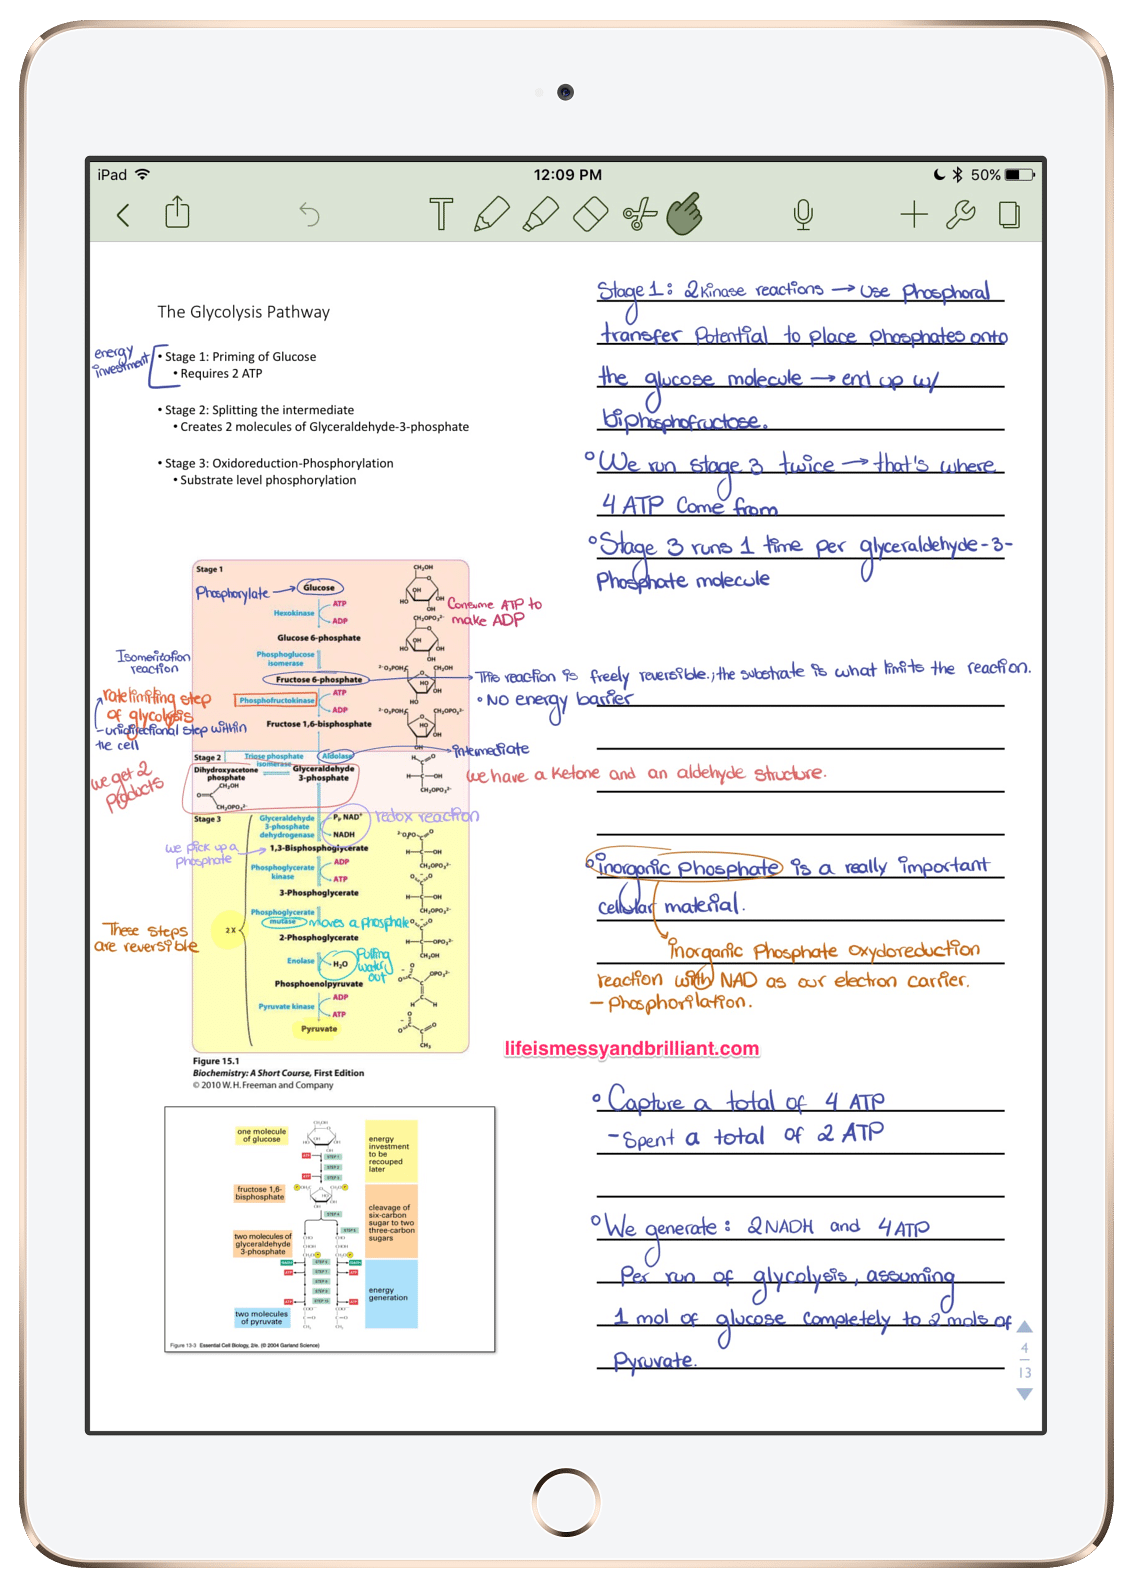 iPad
12:09 PM
50%
T
The Glycolysis Pathway
energy
investment
• Stage 1: Priming of Glucose
• Requires 2 ATP
• Stage 2: Splitting the intermediate
• Creates 2 molecules of Glyceraldehyde-3-phosphate
• Stage 3: Oxidoreduction-Phosphorylation
• Substrate level phosphorylation
Stage 1: 2 Kinase reactions → use Phosphoral
transfer Potential to place phosphates onto
the glucose molecule → end up w/
biphosphofructose.
° We run stage 3 twice → that's where
4 ATP come from
° Stage 3 runs 1 time per glyceraldehyde-3-
Phosphate molecule
Stage 1
Phosphorylate → Glucose
Hexokinase
ATP
ADP
Consume ATP to
make ADP
Glucose 6-phosphate
Isomeritation
reaction
Phosphoglucose
isomerase
Fructose 6-phosphate
This reaction is freely reversible., the substrate is what limits the reaction.
° No energy barrier
rate limiting step
of glycolysis
- unidirectional step within
the cell
Phosphofructokinase
ATP
ADP
Fructose 1,6-bisphosphate
Stage 2
Triose phosphate
isomerase
Aldolase
intermediate
we get 2
Products
Dihydroxyacetone
phosphate
Glyceraldehyde
3-phosphate
we have a Ketone and an aldehyde structure.
Stage 3
Glyceraldehyde
3-phosphate
dehydrogenase
Pi, NAD+
NADH
redox reaction
we pick up a
Phosphate
1,3-Bisphosphoglycerate
Phosphoglycerate
kinase
ADP
ATP
3-Phosphoglycerate
Phosphoglycerate
mutase
moves a phosphate
2 X
These steps
are reversible
2-Phosphoglycerate
Enolase
H₂O
Pulling
water
out
Phosphoenolpyruvate
Pyruvate kinase
ADP
ATP
Pyruvate
° inorganic Phosphate is a really important
cellular material.
inorganic Phosphate oxydoreduction
reaction with NAD as our electron carrier.
- Phosphorilation.
lifeismessyandbrilliant.com
Figure 15.1
Biochemistry: A Short Course, First Edition
© 2010 W. H. Freeman and Company
one molecule
of glucose
energy
investment
to be
recouped
later
ATP
STEP 1
STEP 2
ATP
STEP 3
fructose 1,6-
bisphosphate
STEP 4
cleavage of
six-carbon
sugar to two
three-carbon
sugars
STEP 5
two molecules of
glyceraldehyde
3-phosphate
STEP 6
NADH
NADH
STEP 7
ATP
ATP
STEP 8
STEP 9
STEP 10
ATP
ATP
energy
generation
two molecules
of pyruvate
Figure 13-3 Essential Cell Biology, 2/e. (© 2004 Garland Science)
° Capture a total of 4 ATP
- Spent a total of 2 ATP
° We generate: 2 NADH and 4 ATP
Per run of glycolysis, assuming
1 mol of glucose completely to 2 mols of
Pyruvate.
4
13